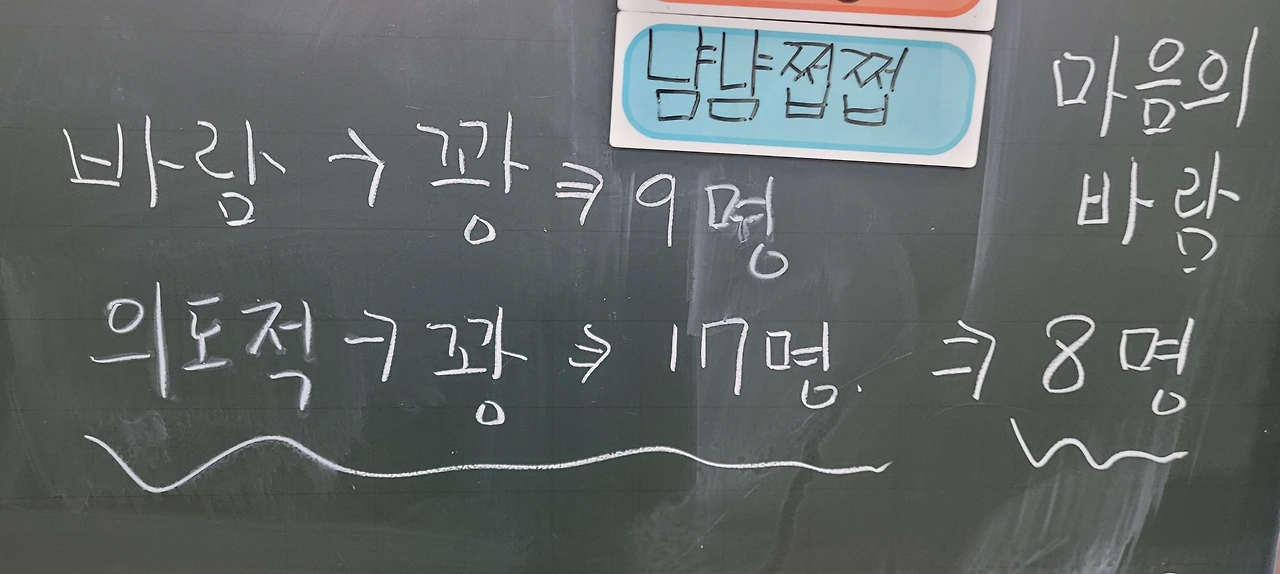 냠냠쩝쩝
마음의
바람
바람 → 꽝 ⇒ 9명
의도적 → 꽝 ⇒ 17명. ⇒ 8명